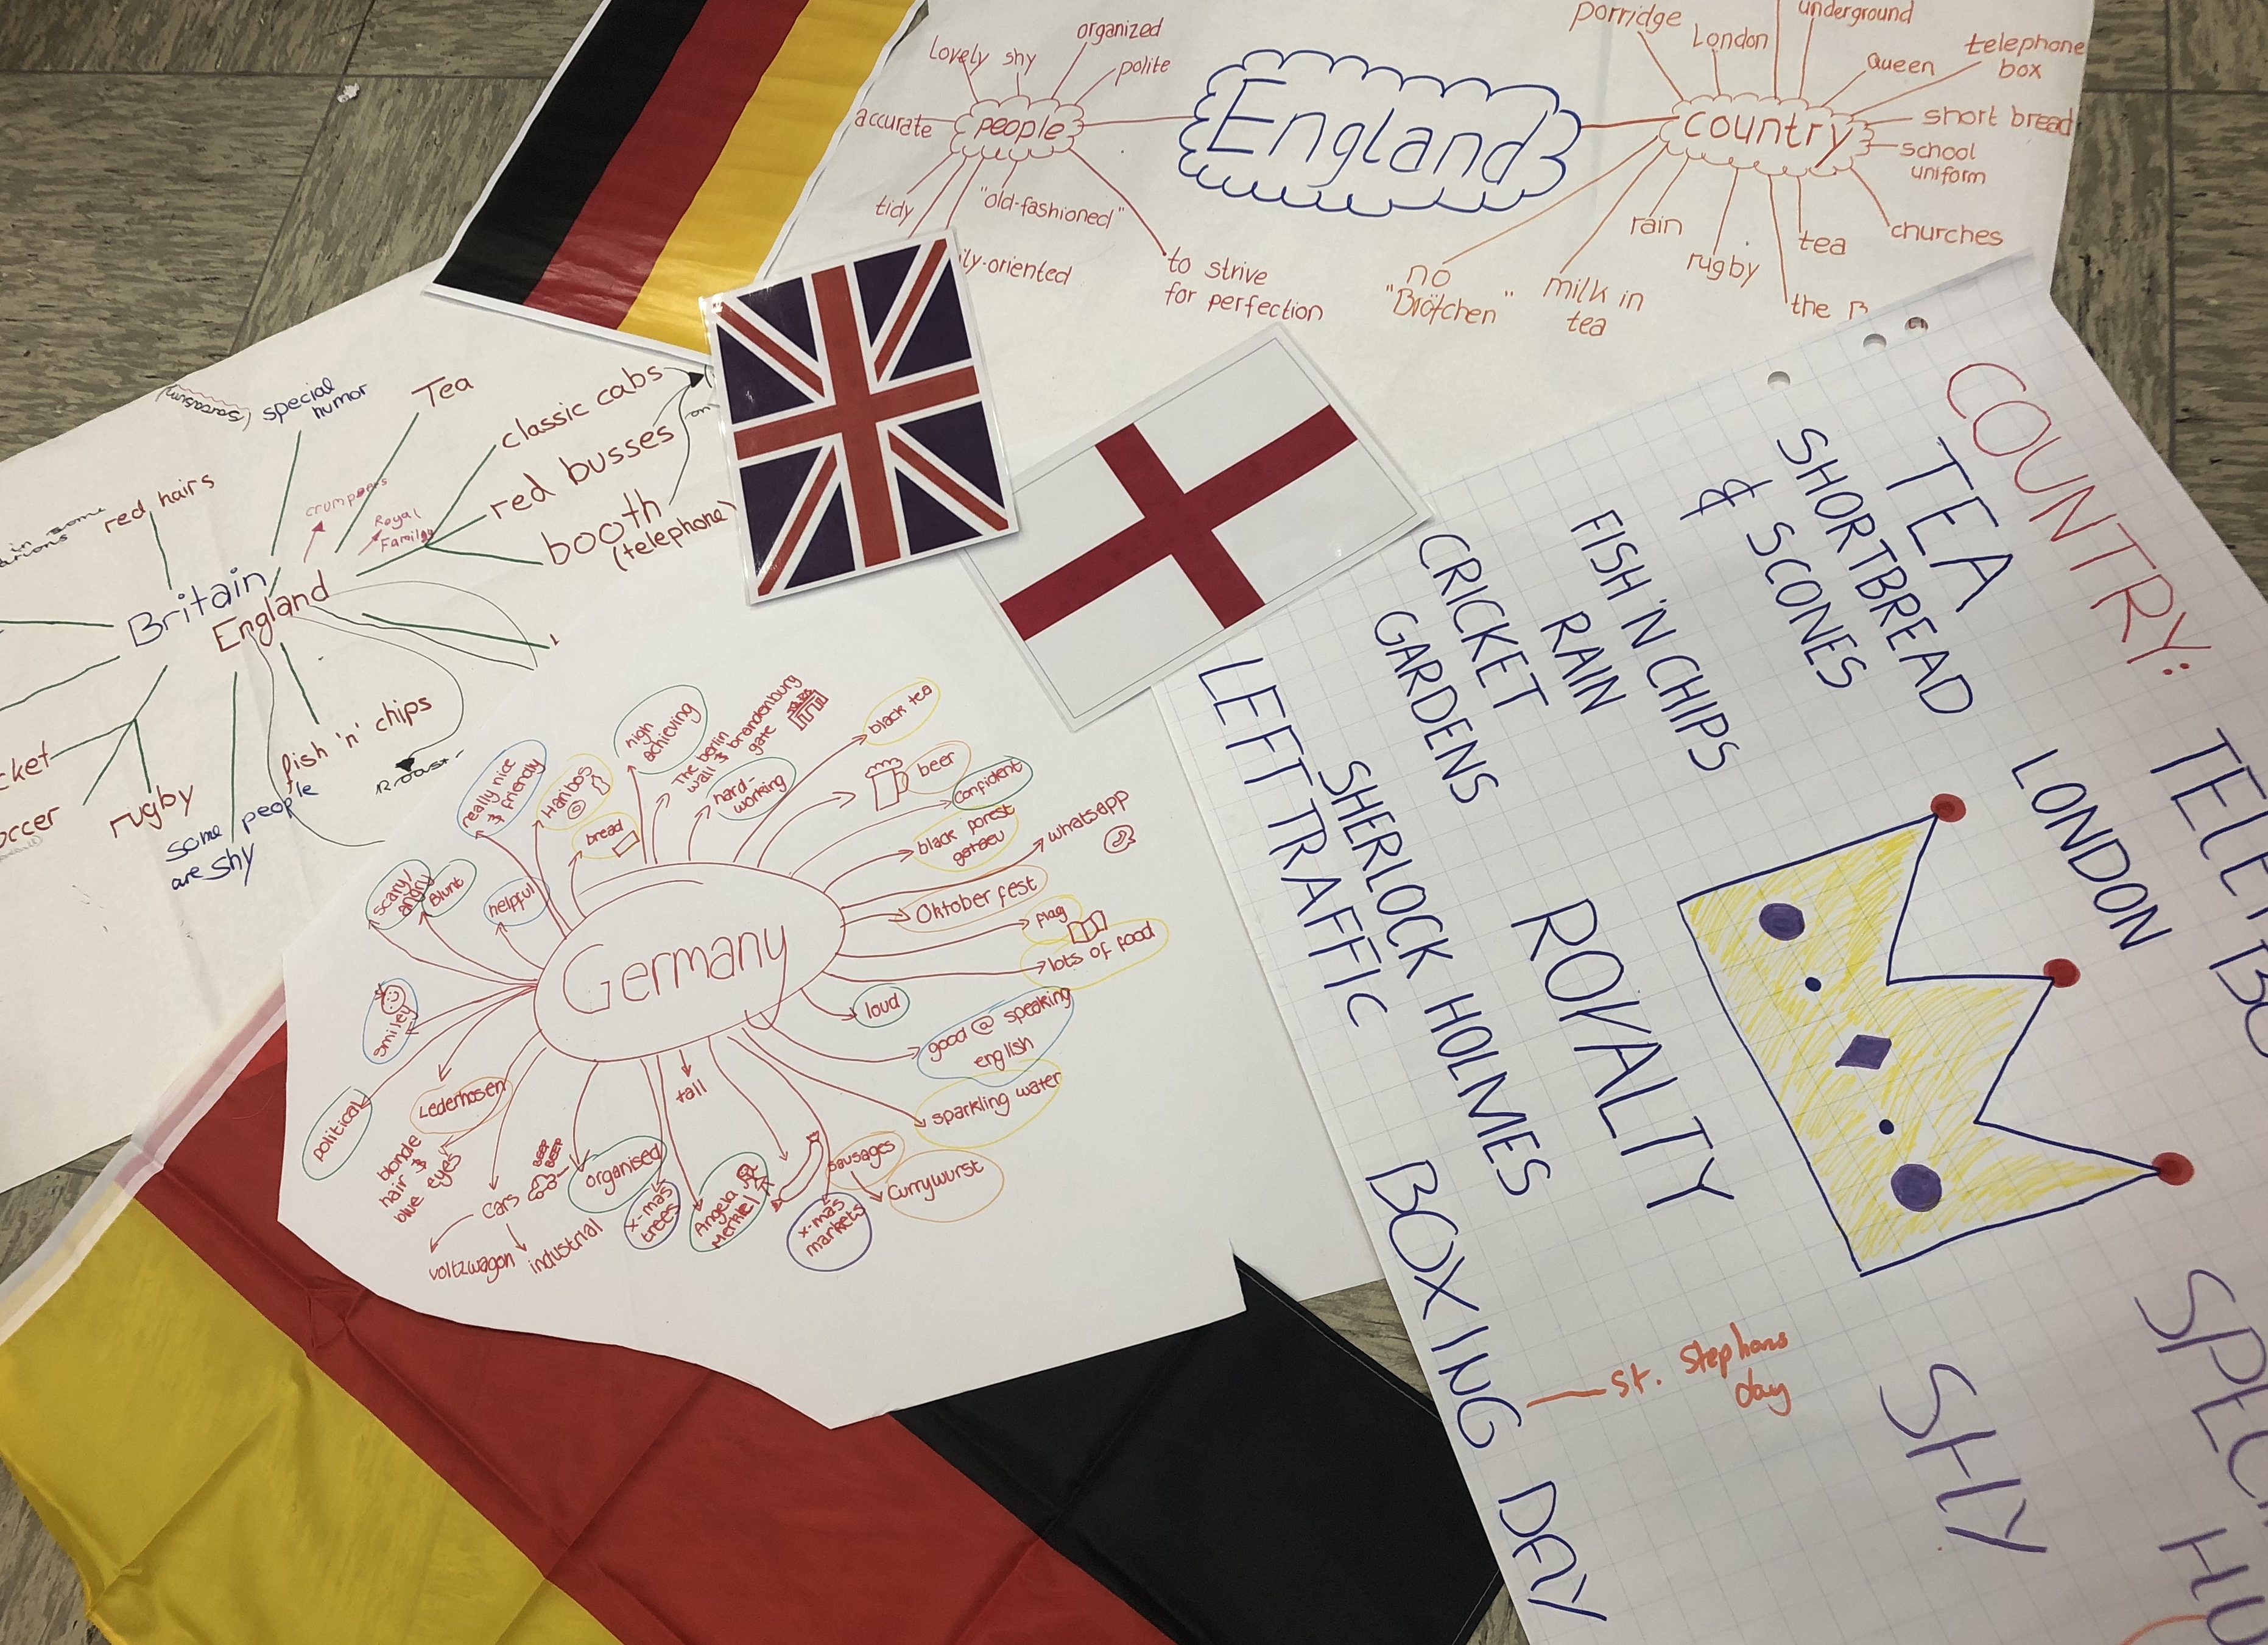 England
people
Lovely
shy
organized
polite
accurate
tidy
"old-fashioned"
ily-oriented
to strive
for perfection
country
porridge
London
underground
Queen
telephone
box
short bread
school
uniform
churches
tea
the
rugby
rain
milk in
tea
no
"Brötchen"
Britain
England
(sarcasm)
special
humor
Tea
classic cabs
red busses
on
booth
(telephone)
red hairs
in some
crumpets
Royal
Family
cket
occer
rugby
some people
are shy
fish 'n' chips
Roast
Germany
high
achieving
The berlin
wall & brandenburg
gate
hard-
working
black tea
beer
confident
black forest
whatsapp
Oktober fest
flag
lots of food
loud
good @ speaking
english
sparkling water
sausages
currywurst
x-mas
markets
tall
Angela
Merkel
x-mas
trees
organised
BEEP
BEEP
cars
voltzwagon
industrial
blonde
hair &
blue eyes
Lederhosen
political
smiley
scary/
angry
Blunt
helpful
really nice
& friendly
Haribos
bread
COUNTRY:
TEA
SHORTBREAD
& SCONES
FISH 'N CHIPS
RAIN
CRICKET
GARDENS
LEFT TRAFFIC
SHERLOCK HOLMES
ROYALTY
LONDON
BOXING DAY
St. Stephans
day
SHY